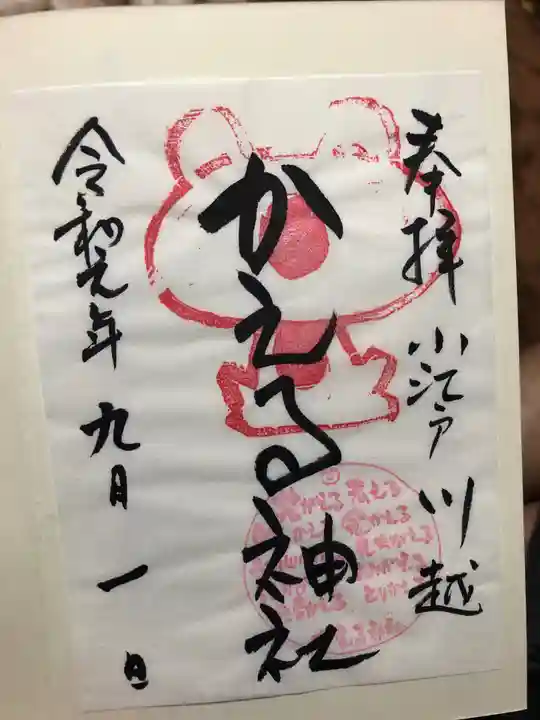 奉拝 小江戸 川越
かえる神社
令和元年 九月 一日